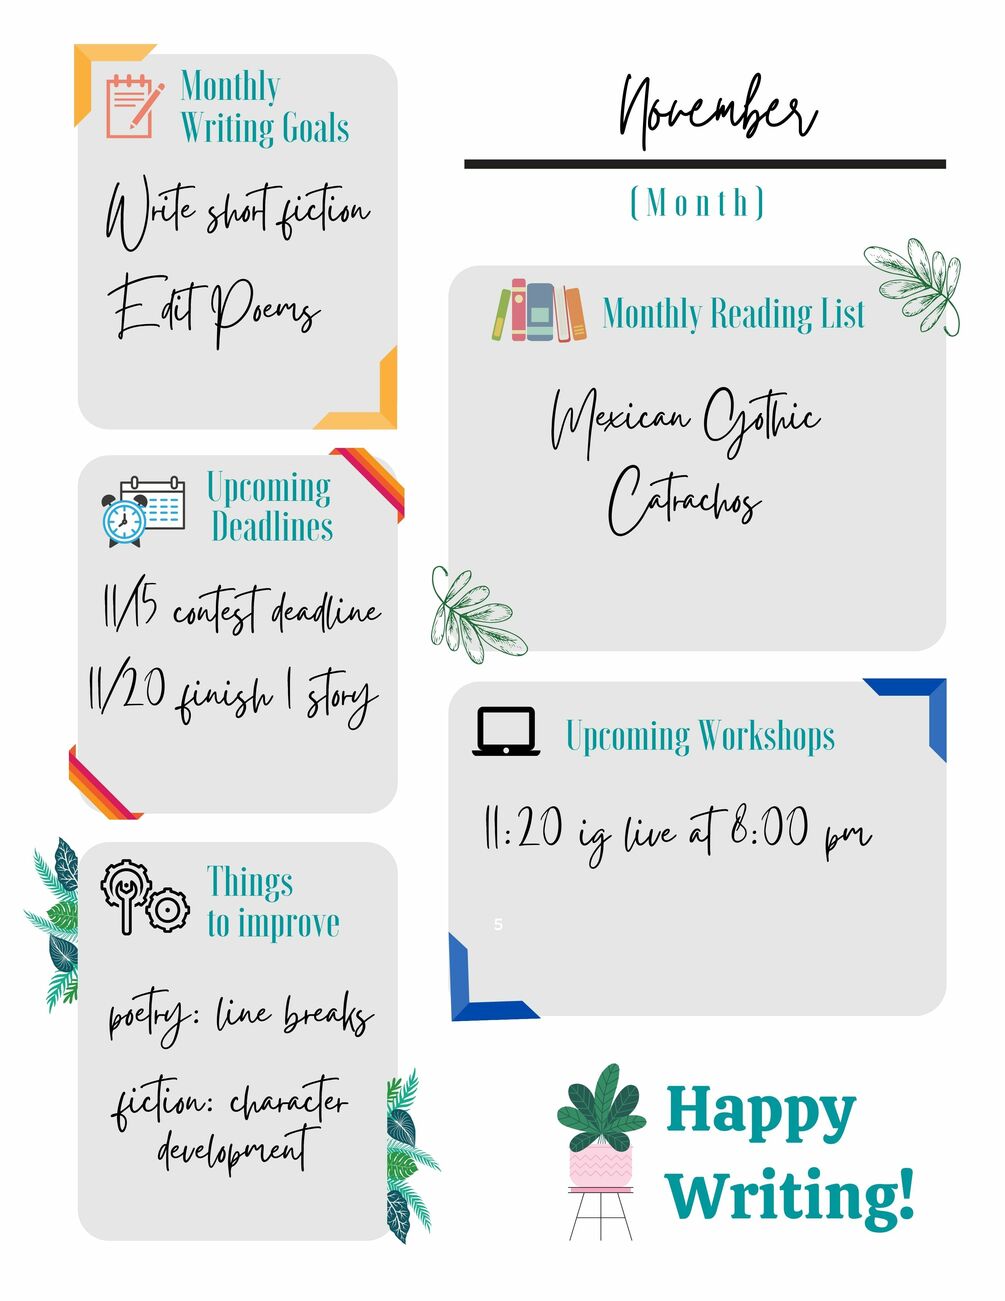 Monthly
Writing Goals
Write short fiction
Edit Poems
Upcoming
Deadlines
11/15 contest deadline
11/20 finish 1 story
Things
to improve
poetry: line breaks
fiction: character
development
November
(Month)
Monthly Reading List
Mexican Gothic
Catrachos
Upcoming Workshops
11:20 ig live at 8:00 pm
5
Happy
Writing!